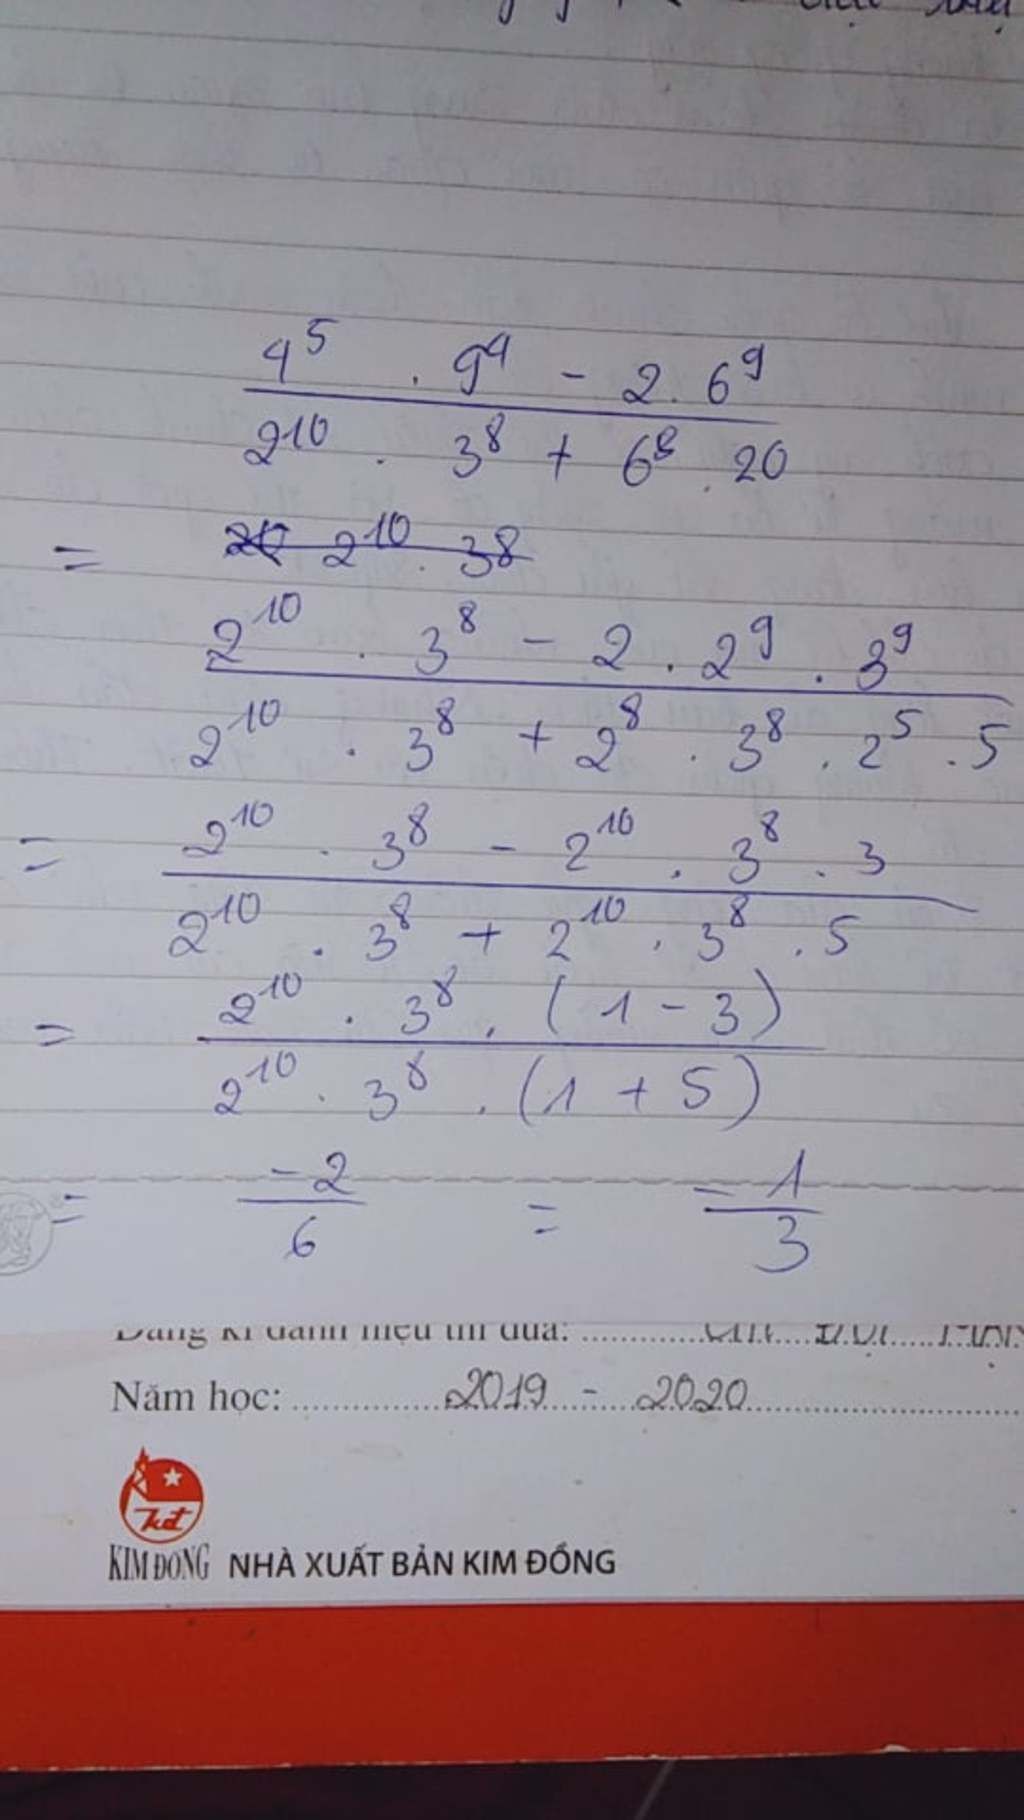 4⁵ . 9⁴ - 2 . 6⁹
2¹⁰ . 3⁸ + 6⁸ . 20
= 2¹⁰ . 3⁸
2¹⁰ . 3⁸ - 2 . 2⁹ . 3⁹
2¹⁰ . 3⁸ + 2⁸ . 3⁸ . 2⁵ . 5
= 2¹⁰ . 3⁸ - 2¹⁰ . 3⁸ . 3
2¹⁰ . 3⁸ + 2¹⁰ . 3⁸ . 5
= 2¹⁰ . 3⁸ . (1 - 3)
2¹⁰ . 3⁸ . (1 + 5)
= -2 = -1
6 3
Năm học: 2019 - 2020
kđ
KIM ĐỒNG NHÀ XUẤT BẢN KIM ĐỒNG